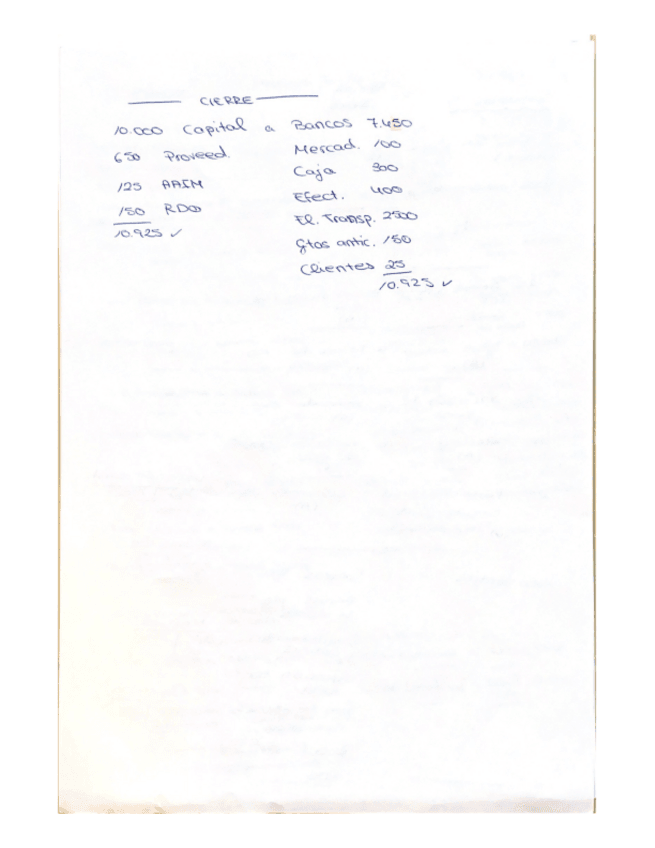 CIERRE
10.000 Capital a Bancos 7.450
650 Proveed. Mercad. 100
Caja 300
125 AAIM Efect. 400
150 RDO El. Transp. 2500
10.925 ✓ Gtos antic. 150
Clientes 25
10.925 ✓